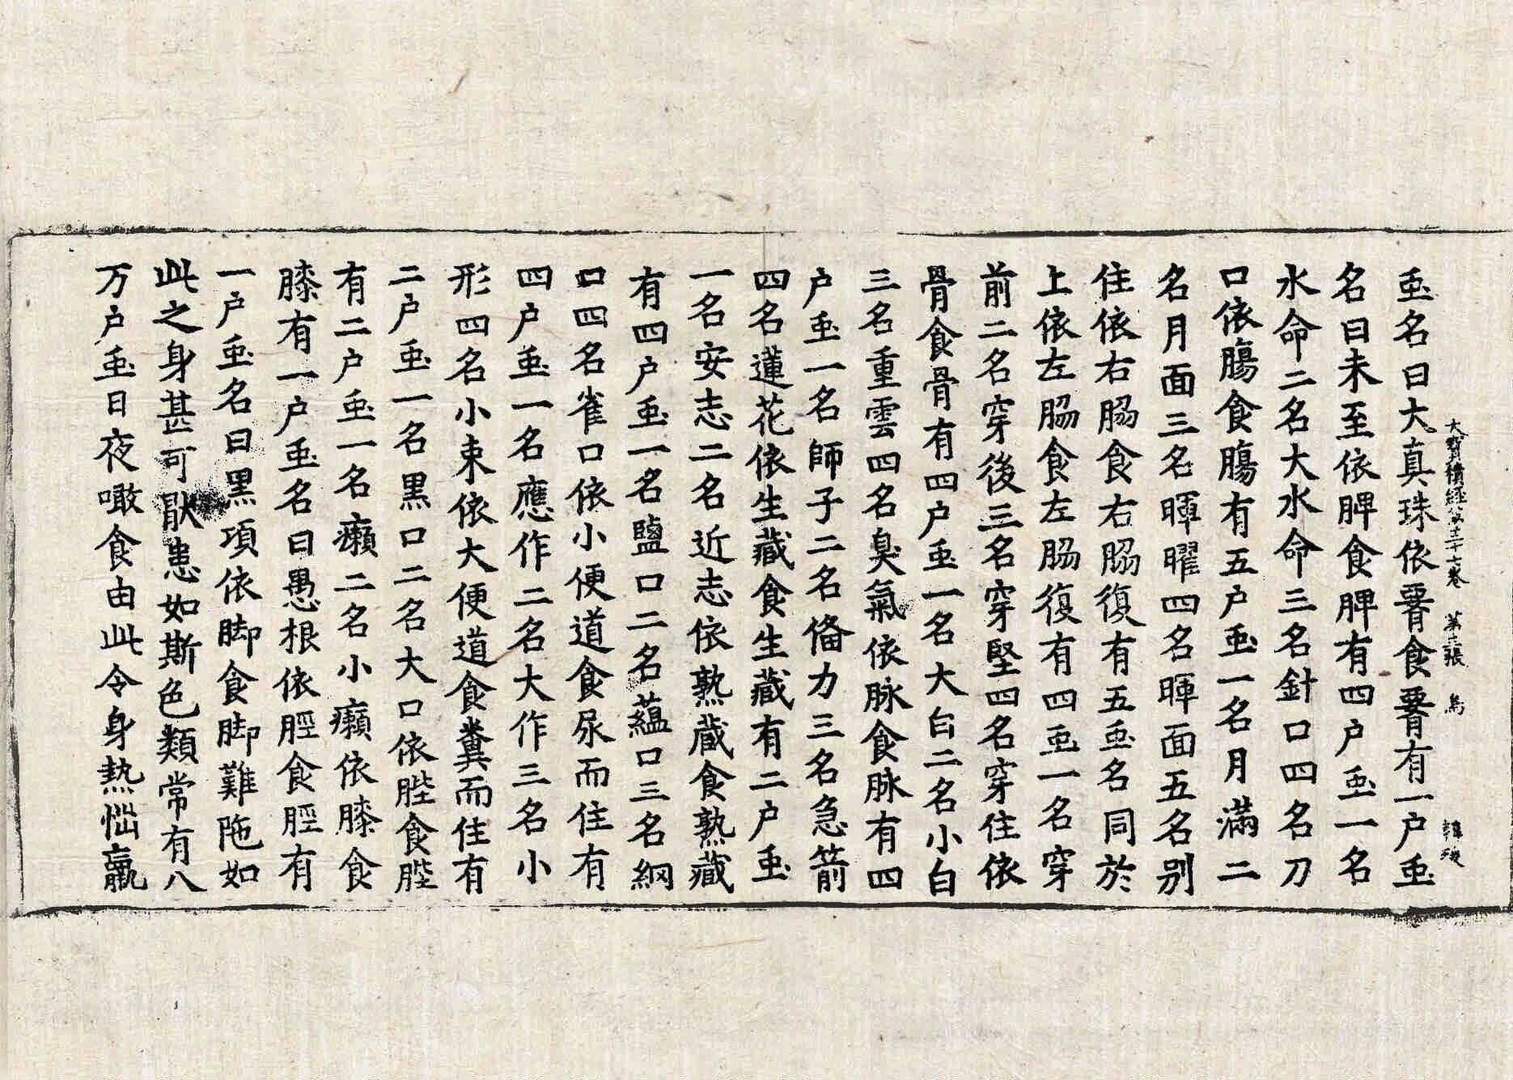 大寶積經苐五十七卷 苐 張 鳥
䖝名曰大真珠依腎食腎有一户䖝
名曰未至依脾食脾有四户䖝一名
水命二名大水命三名針口四名刀
口依膓食膓有五户䖝一名月滿二
名月面三名暉曜四名暉面五名别
住依右脇食右脇復有五䖝名同於
上依左脇食左脇復有四䖝一名穿
前二名穿後三名穿堅四名穿住依
骨食骨有四户䖝一名大白二名小白
三名重雲四名臭氣依脉食脉有四
户䖝一名師子二名偹力三名急箭
四名蓮花依生藏食生藏有二户䖝
一名安志二名近志依熟藏食熟藏
有四户䖝一名鹽口二名蘊口三名網
口四名雀口依小便道食尿而住有
四户䖝一名應作二名大作三名小
形四名小束依大便道食糞而住有
二户䖝一名黑口二名大口依䏶食䏶
有二户䖝一名癩二名小癩依膝食
膝有一户䖝名曰愚根依脛食脛有
一户䖝名曰黑項依脚食脚難陁如
此之身甚可猒患如斯色類常有八
万户䖝日夜噉食由此令身熱惱羸